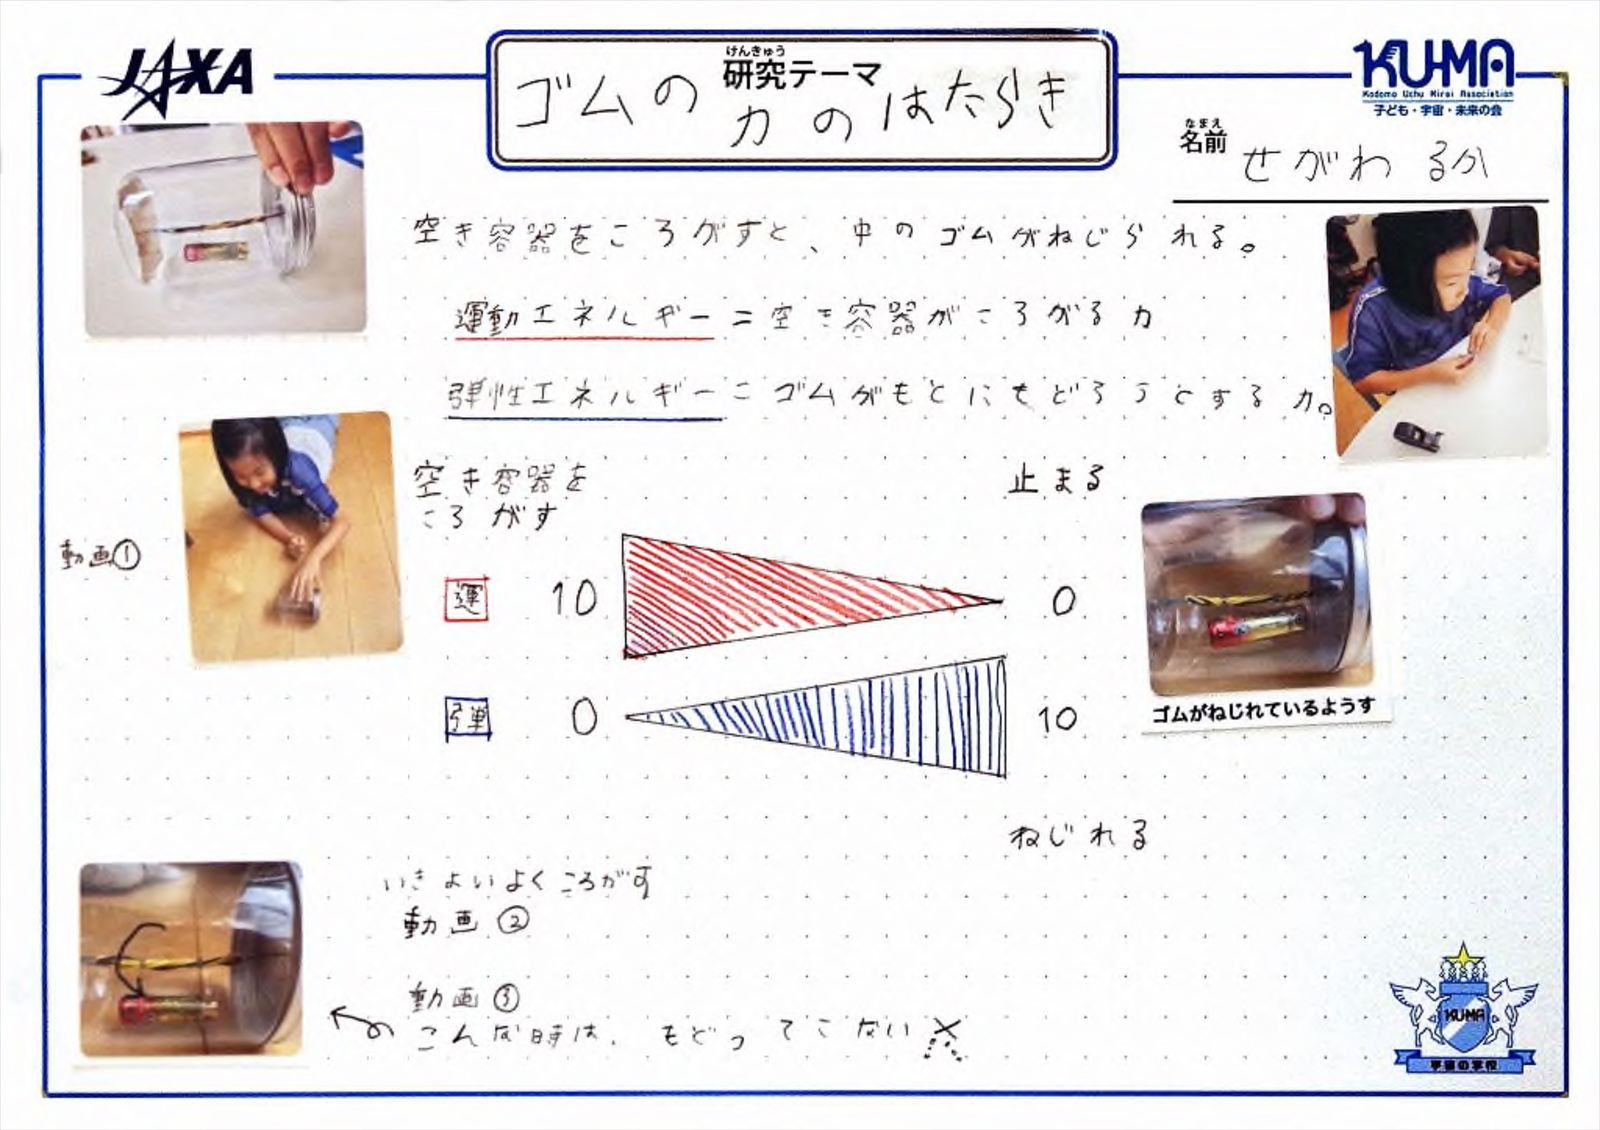 JAXA
けんきゅう
研究テーマ
ゴムの力のはたらき
KU-MA
Kodomo Uchu Mirai Association
子ども・宇宙・未来の会
なまえ
名前
せがわ るか
空き容器をころがすと、中のゴムがねじられる。
運動エネルギー=空き容器がころがる力
弾性エネルギー=ゴムがもとにもどろうとする力。
空き容器を
ころがす
止まる
動画①
運 10 0
弾 0 10
ゴムがねじれているようす
ねじれる
いきよいよくころがす
動画②
動画③
こんな時は、もどってこない
KU-MA
宇宙の学校